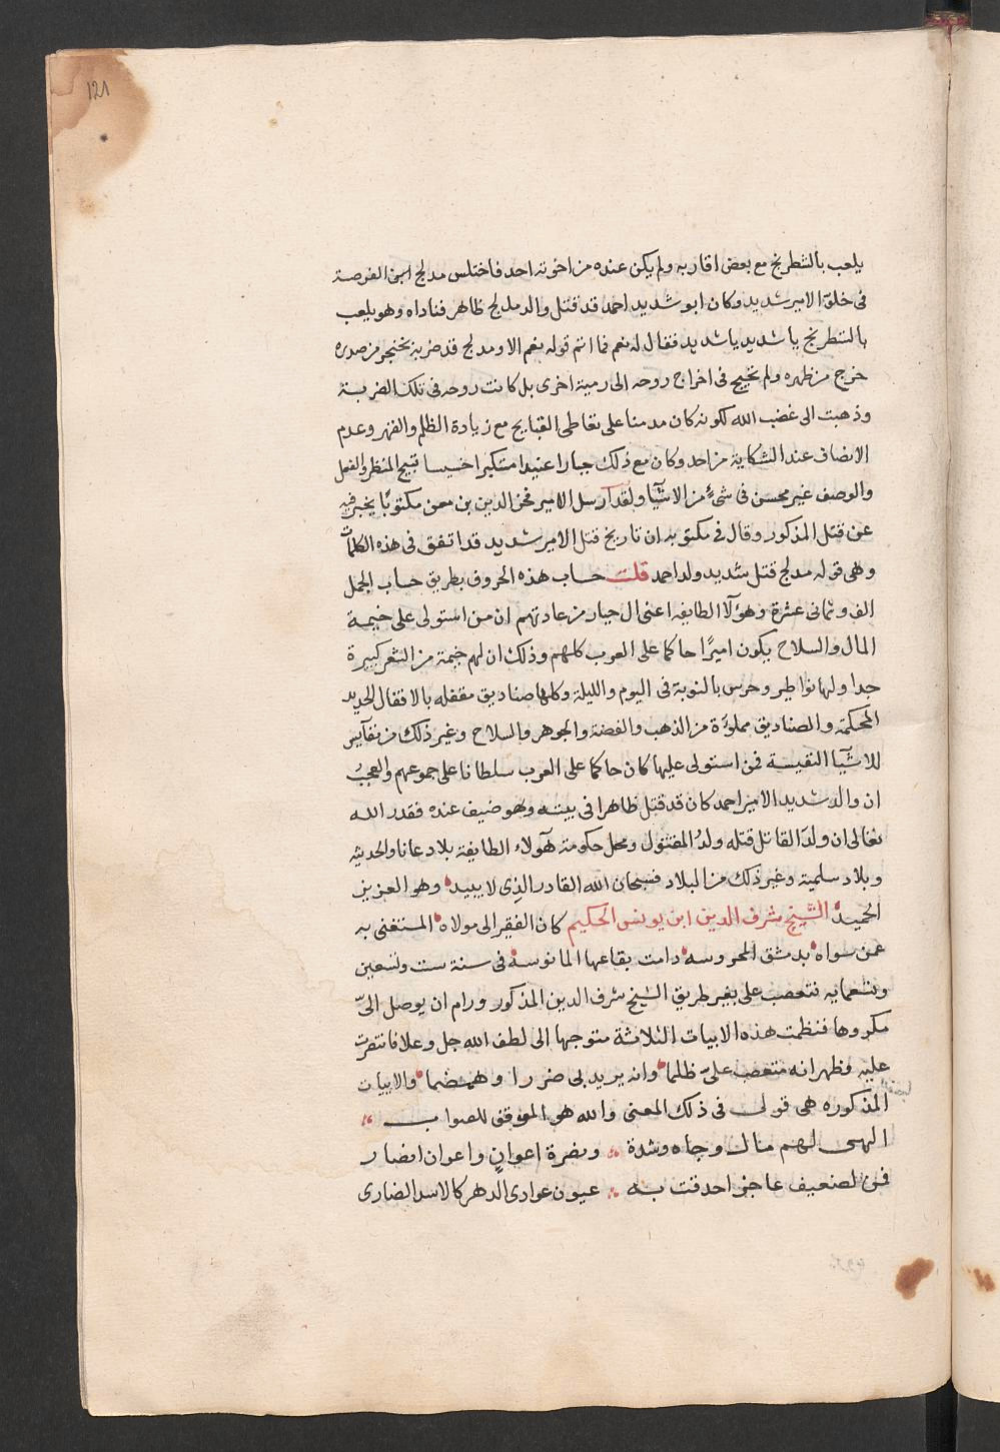 121
يلعب بالشطرنج مع بعض اقاربه ولم يكن عنده من اخوته احد فاختلس مدلج ابن الفرصة
فى خلوة الامير شديد وكان ابو شديد احمد قد قتل والد مدلج ظاهر فناداه وهو يلعب
بالشطرنج يا شديد يا شديد فقال له نعم فما اتم قوله نعم الا ومدلج قد ضربه بخنجر من صدره
خرج من ظهره ولم يحتج فى اخراج روحه الى رمية اخرى بل كانت روحه فى تلك الضربة
وذهبت الى غضب الله لكونه كان مدمنا على تعاطى القبايح مع زيادة الظلم والقهر وعدم
الانصاف عند الشكاية من احد وكان مع ذلك جبارا عنيدا متكبرا خسيسا قبيح المنظر والفعل
والوصف غير محسن فى شىء من الاشيآ ولقد ارسل الامير فخر الدين بن معن مكتوبًا يخبر فيه
عن قتل المذكور وقال فى مكتوبه ان تاريخ قتل الامير شديد قد اتفق فى هذه الكلمات
وهى قوله مدلج قتل شديد ولد احمد قلت حساب هذه الحروف بطريق حساب الجمل
الف وثمانى عشرة وهؤلآ الطايفه اعنى ال حيار من عادتهم ان من استولى على خيمة
المال والسلاح يكون اميرًا حاكما على العرب كلهم وذلك ان لهم خيمة من الشعر كبيرة
جدا ولها نواطير وحرس بالنوبة فى اليوم والليلة وكلها صناديق مقفله بالاقفال الحديد
المحكمة والصناديق مملؤة من الذهب والفضة والجوهر والسلاح وغير ذلك من نفآيس
للاشيآ النفيسة فمن استولى عليها كان حاكما على العرب سلطانا على جموعهم والعجبُ
ان والد شديد الامير احمد كان قد قتل ظاهرا فى بيته وهو ضيف عنده فقدر الله
تعالى ان ولدَ القاتل قتله ولدُ المقتول ومحل حكومة هٓولاء الطايفة بلاد عانا والحديثه
وبلاد سلمية وغير ذلك من البلاد فسبحان الله القادر الذى لا يبيد وهو العزيز
الحميد الشيخ شرف الدين ابن يونس الحكيم كان الفقير الى مولاه المستغنى به
عمن سواه بدمشق المحروسه دامت بقاعها المانوسة فى سنة ست وتسعين
وتسعمايه فتعصب على بغير طريق الشيخ شرف الدين المذكور ورام ان يوصل الىّ
مكروها فنظمت هذه الابيات الثلاثة متوجها الى لطف الله جل وعلا فانتصرت
عليه وظهر انه متعصب علىّ ظلما وانه يريد بى ضررا وهمضما والابيات
المذكوره هى قولى فى ذلك المعنى والله هو الموفق للصواب
الهى لهم مال وجاه وشدة ونصرة اعوانٍ واعوان انصار
فمن لضعيف عاجز احدقت به عيون عوادى الدهر كالاسد الضارى